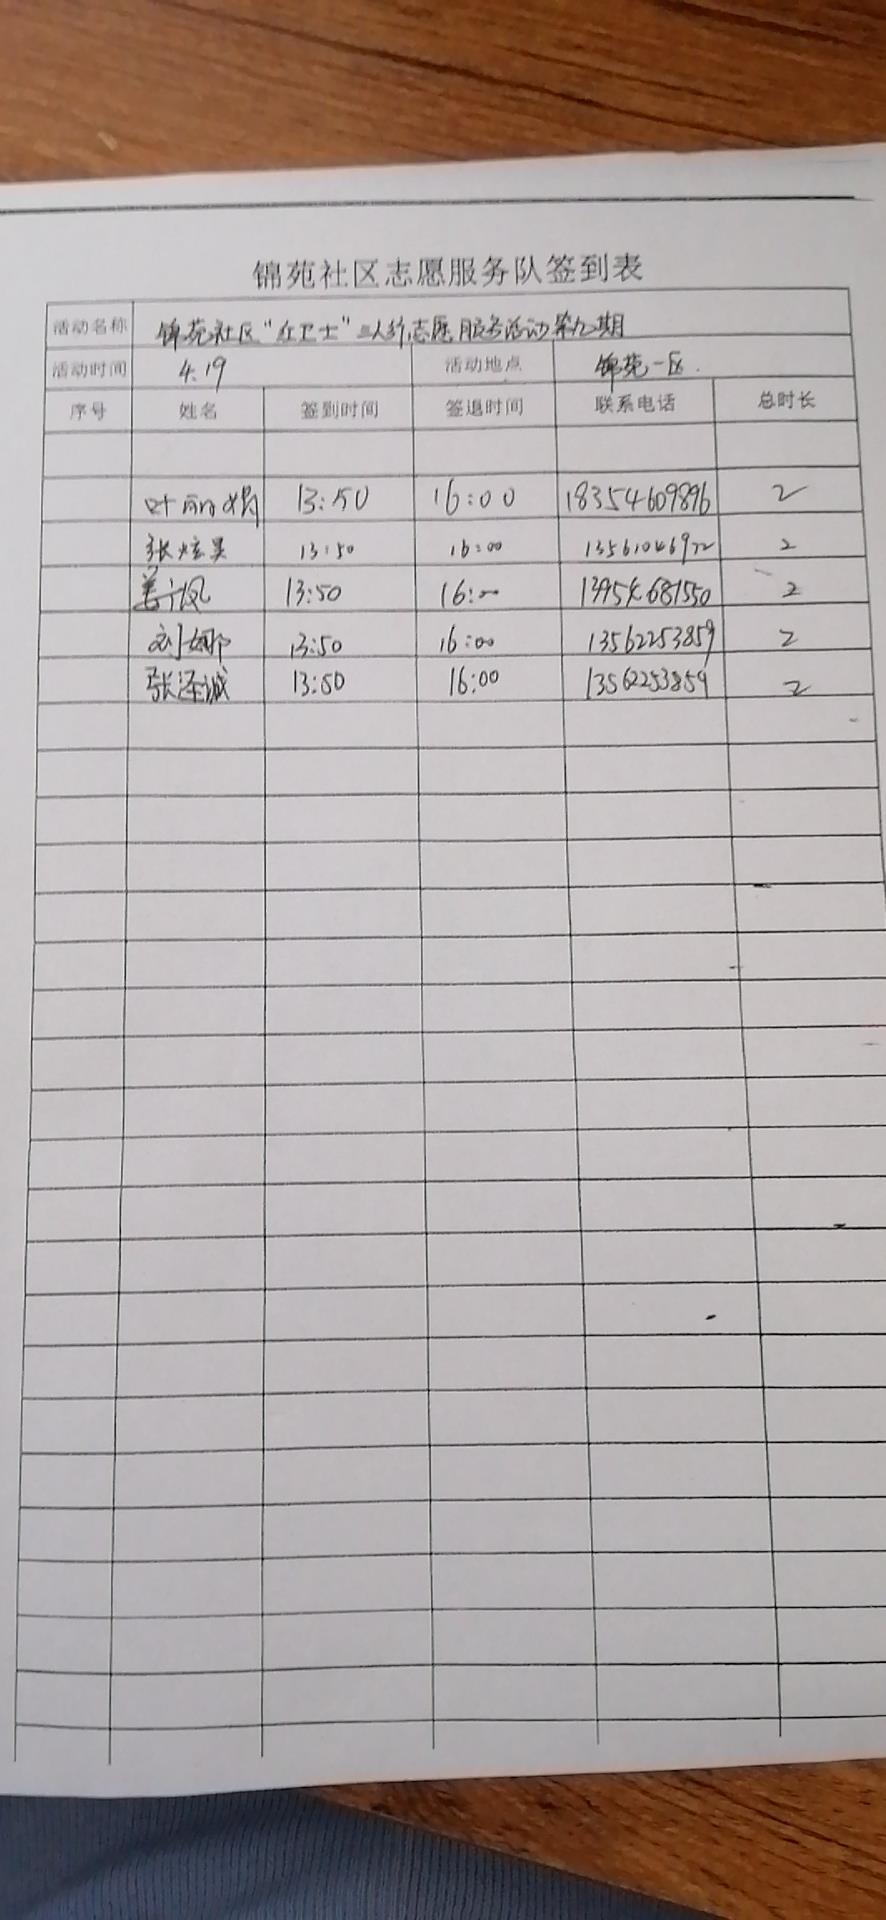 锦苑社区志愿服务队签到表
活动名称 锦苑社区"红卫士"三人行志愿服务活动第九期
活动时间 4.19 活动地点 锦苑一区
序号 姓名 签到时间 签退时间 联系电话 总时长
叶丽娟 13:50 16:00 18354609896 2
张炫昊 13:50 16:00 13561046972 2
13:50 16:00 2
刘娜 13:50 16:00 13562253859 2
张泽诚 13:50 16:00 13562253859 2